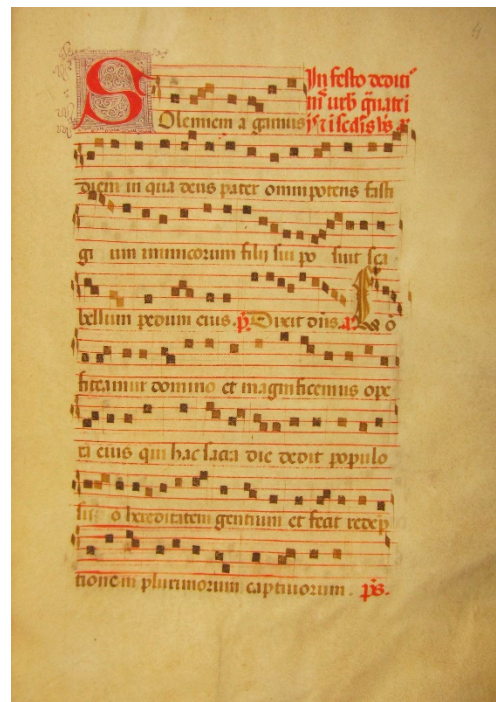 In festo dediti
Solenniem agamus
diem in qua deus pater omnipotens fasti
gi um inimicorum filij sui po suit sca
bellum pedum eius. p̄. Dixit dn̄s. a
fiteamur domino et magnificemus ope
ra eius qui hac sacra die dedit populo
suo hereditatem gentium et fecit redep̄
tionem plurimorum captiuorum. p̄s.